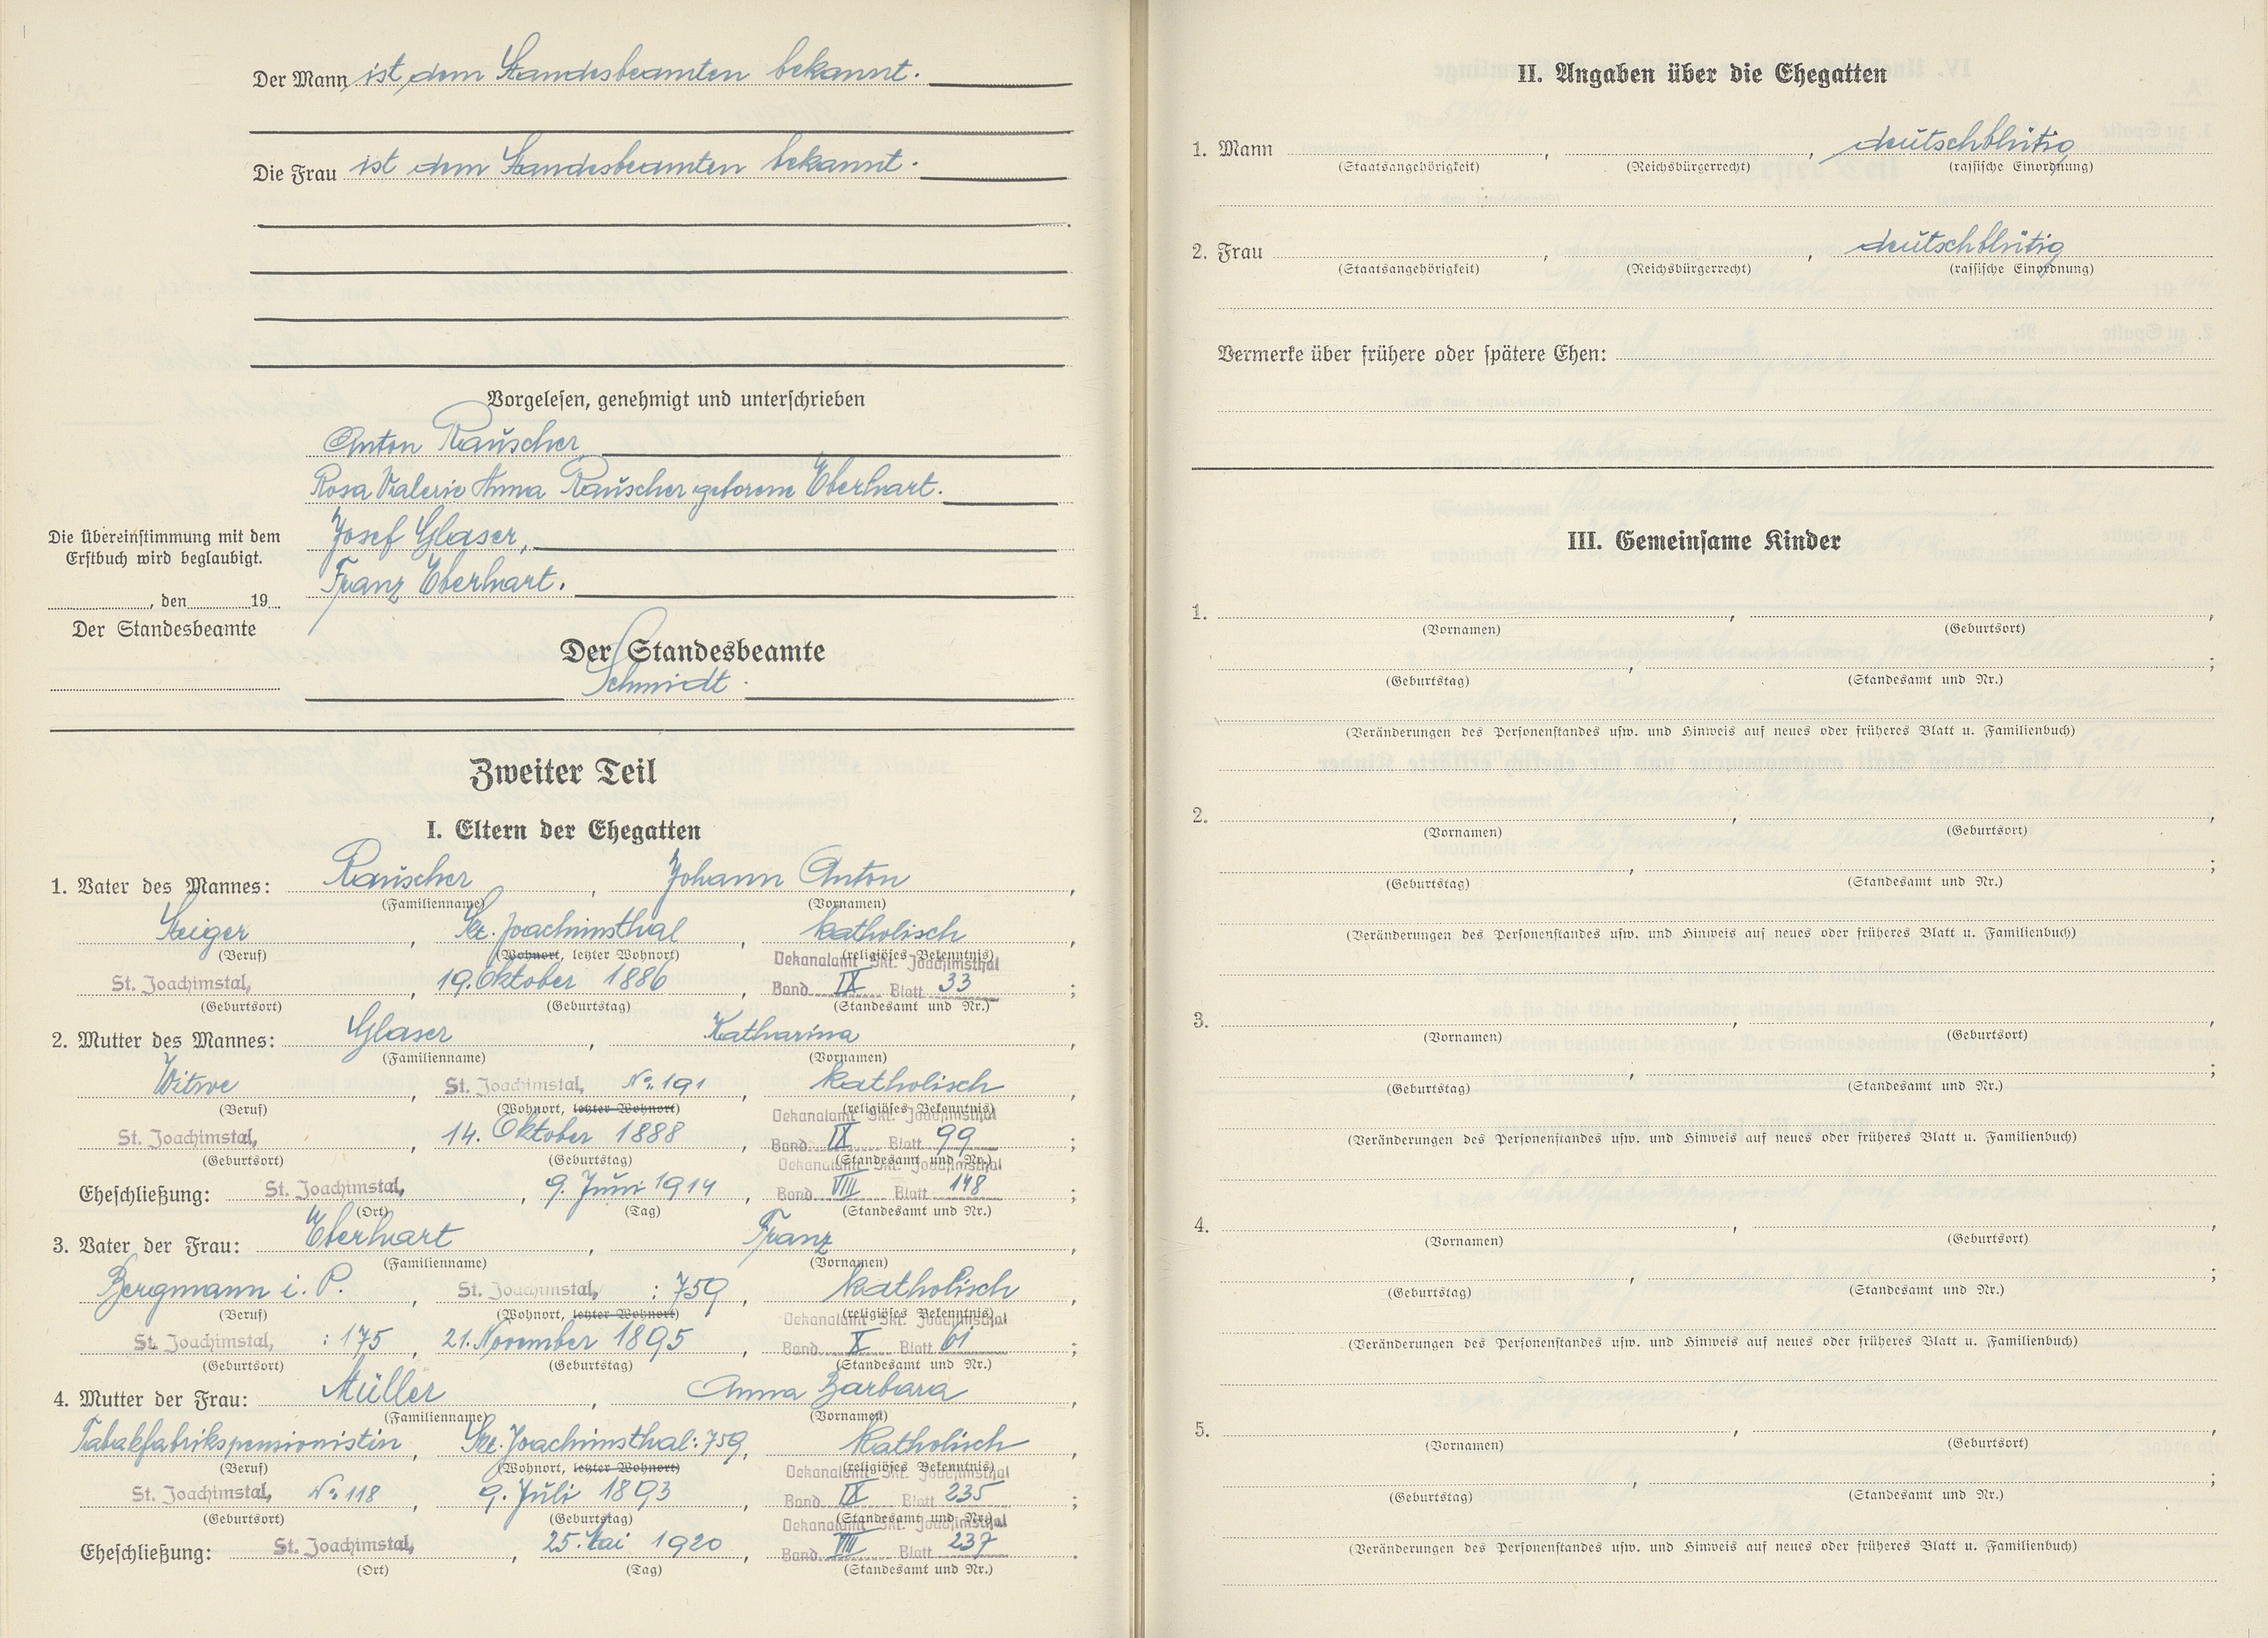 Der Mann ist dem Standesbeamten bekannt.
Die Frau ist dem Standesbeamten bekannt.
Vorgelesen, genehmigt und unterschrieben
Anton Rauscher,
Rosa Valerie Anna Rauscher geborene Eberhart.
Josef Glaser,
Franz Eberhart.
Die Übereinstimmung mit dem
Erstbuch wird beglaubigt.
, den 19
Der Standesbeamte
Der Standesbeamte
Schmidt.
Zweiter Teil
I. Eltern der Ehegatten
1. Vater des Mannes: Rauscher, Johann Anton,
(Familienname) (Vornamen)
Steiger, Skt. Joachimsthal, katholisch,
(Beruf) (Wohnort, letzter Wohnort) (religiöses Bekenntnis)
Dekanalamt Skt. Joachimsthal
St. Joachimstal, , 19. Oktober 1886, Band IX Blatt 33;
(Geburtsort) (Geburtstag) (Standesamt und Nr.)
2. Mutter des Mannes: Glaser, Katharina,
(Familienname) (Vornamen)
Witwe, St. Joachimstal, No. 191, katholisch,
(Beruf) (Wohnort, letzter Wohnort) (religiöses Bekenntnis)
Dekanalamt Skt. Joachimsthal
St. Joachimstal, , 14. Oktober 1888, Band IX Blatt 99;
(Geburtsort) (Geburtstag) (Standesamt und Nr.)
Dekanalamt Skt. Joachimsthal
Eheschließung: St. Joachimstal, , 9. Juni 1914, Band VIII Blatt 148;
(Ort) (Tag) (Standesamt und Nr.)
3. Vater der Frau: Eberhart, Franz,
(Familienname) (Vornamen)
Bergmann i. P., St. Joachimstal, : 759, katholisch,
(Beruf) (Wohnort, letzter Wohnort) (religiöses Bekenntnis)
Dekanalamt Skt. Joachimsthal
St. Joachimstal, : 175, 21. November 1895, Band X Blatt 61;
(Geburtsort) (Geburtstag) (Standesamt und Nr.)
4. Mutter der Frau: Müller, Anna Barbara,
(Familienname) (Vornamen)
Tabakfabrikspensionistin, Skt. Joachimsthal: 759, katholisch,
(Beruf) (Wohnort, letzter Wohnort) (religiöses Bekenntnis)
Dekanalamt Skt. Joachimsthal
St. Joachimstal, No 118, 9. Juli 1893, Band IX Blatt 235;
(Geburtsort) (Geburtstag) (Standesamt und Nr.)
Dekanalamt Skt. Joachimsthal
Eheschließung: St. Joachimstal, , 25. Mai 1920, Band VIII Blatt 237.
(Ort) (Tag) (Standesamt und Nr.)
II. Angaben über die Ehegatten
1. Mann , , deutschblütig
(Staatsangehörigkeit) (Reichsbürgerrecht) (rassische Einordnung)
2. Frau , , deutschblütig
(Staatsangehörigkeit) (Reichsbürgerrecht) (rassische Einordnung)
Vermerke über frühere oder spätere Ehen:
III. Gemeinsame Kinder
1. , ,
(Vornamen) (Geburtsort)
, ;
(Geburtstag) (Standesamt und Nr.)
(Veränderungen des Personenstandes usw. und Hinweis auf neues oder früheres Blatt u. Familienbuch)
2. , ,
(Vornamen) (Geburtsort)
, ;
(Geburtstag) (Standesamt und Nr.)
(Veränderungen des Personenstandes usw. und Hinweis auf neues oder früheres Blatt u. Familienbuch)
3. , ,
(Vornamen) (Geburtsort)
, ;
(Geburtstag) (Standesamt und Nr.)
(Veränderungen des Personenstandes usw. und Hinweis auf neues oder früheres Blatt u. Familienbuch)
4. , ,
(Vornamen) (Geburtsort)
, ;
(Geburtstag) (Standesamt und Nr.)
(Veränderungen des Personenstandes usw. und Hinweis auf neues oder früheres Blatt u. Familienbuch)
5. , ,
(Vornamen) (Geburtsort)
, ;
(Geburtstag) (Standesamt und Nr.)
(Veränderungen des Personenstandes usw. und Hinweis auf neues oder früheres Blatt u. Familienbuch)